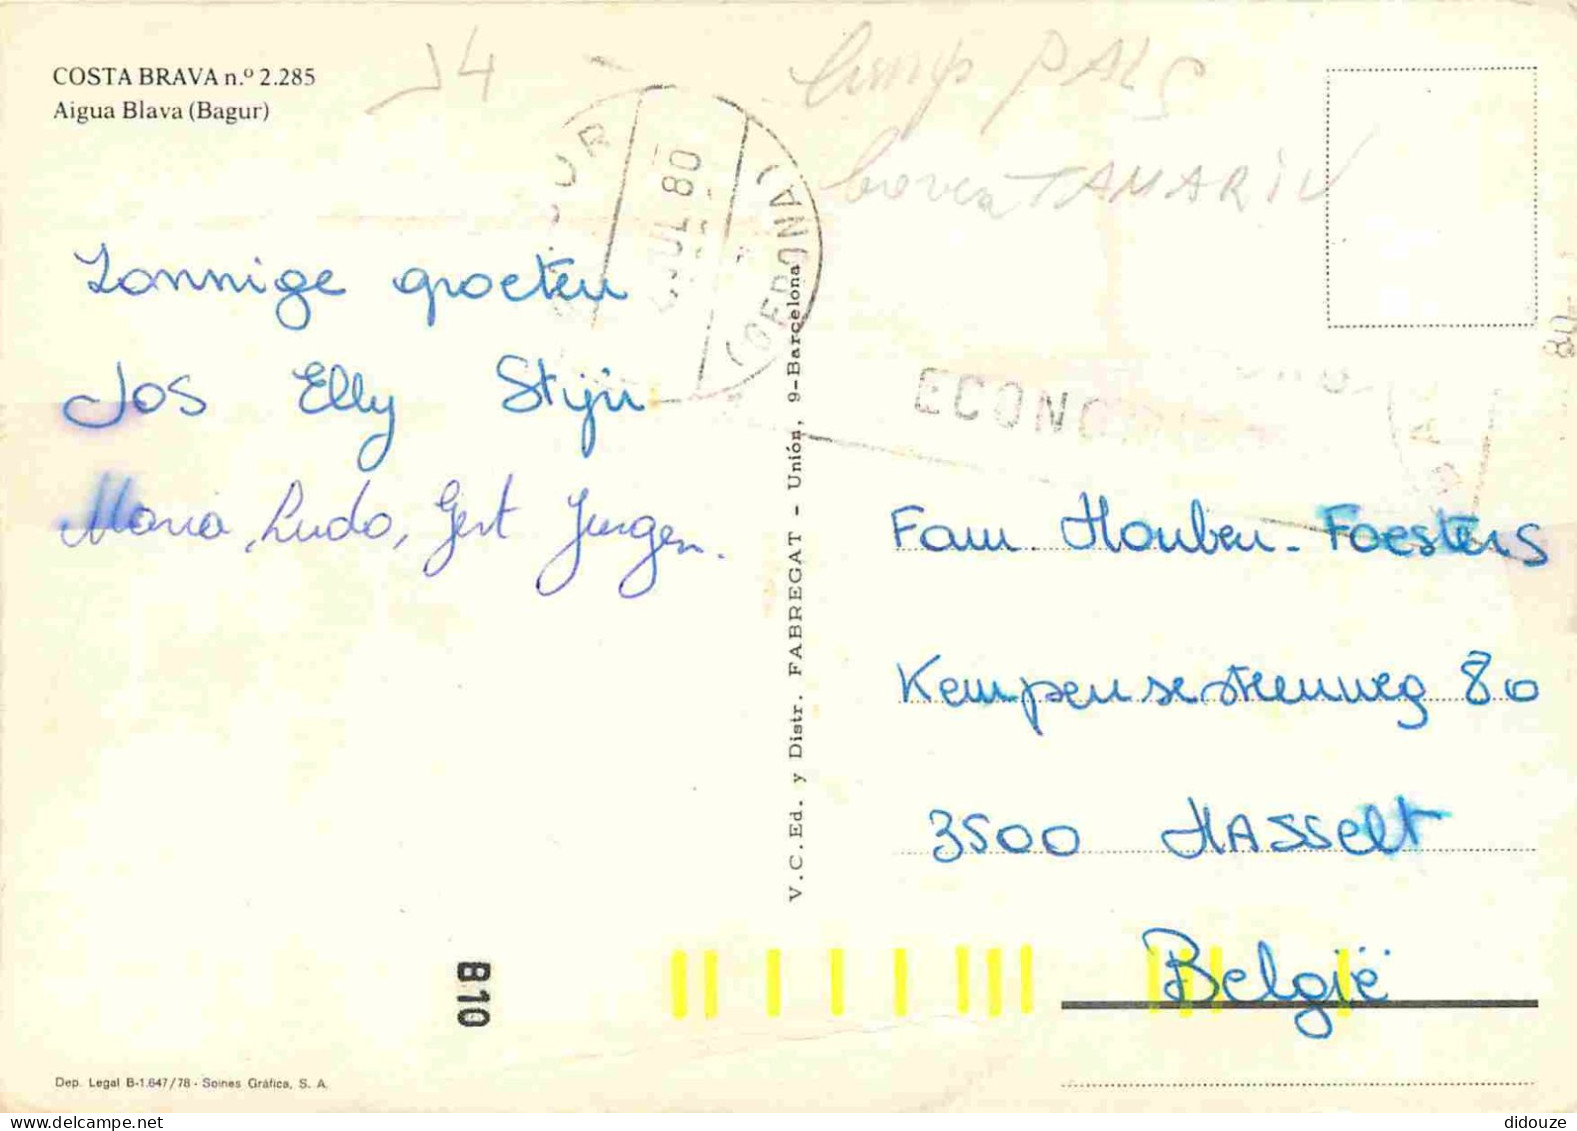 COSTA BRAVA n.º 2.285
Aigua Blava (Bagur)
J4
Camp PALS
TAMARIU
JUL 80
(GERONA)
ECONO
80
Zonnige groeten
Jos Elly Stijn
Maria, Ludo, Gert Jurgen.
V.C. Ed. y Distr. FABREGAT - Unión, 9-Barcelona
Fam. Houben-Foesters
Kempensesteenweg 80
3500 HASSelt
België
B10
Dep. Legal B-1.647/78 - Soines Gráfica, S. A.
delcampe.net
didouze